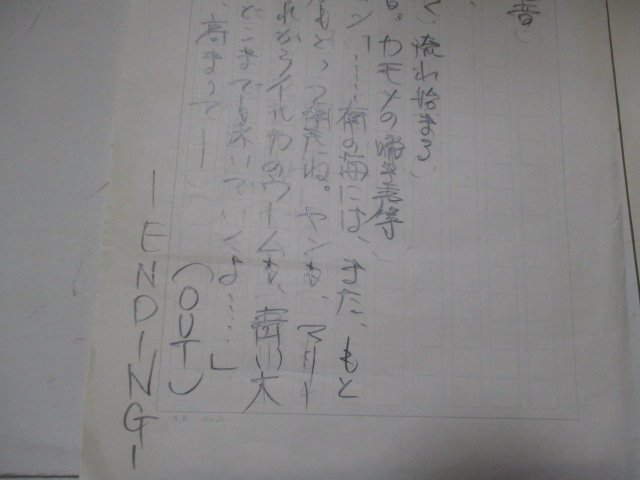 音)
く、流れ始まる)
る。カモメの啼き声等)
ン「……南の海には、また、もと
もどって来たね。ヤンも、マリー
れからイルカのウームも、青い大
どこまでも続いていくよ……」
高まって― (OUT)
―ENDING―